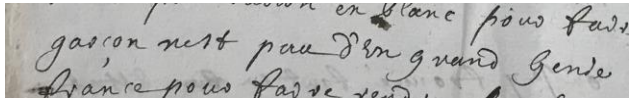 en blanc pour faire
gascon nest pas d'un grand genie
france pour faire rend